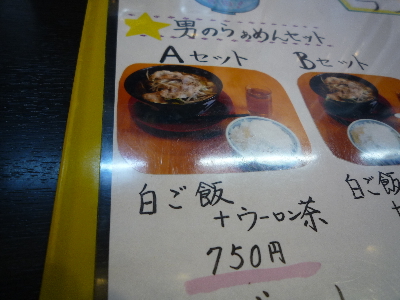 男のらぁめんセット
Aセット
Bセット
白ご飯
+ウーロン茶
750円
白ご飯